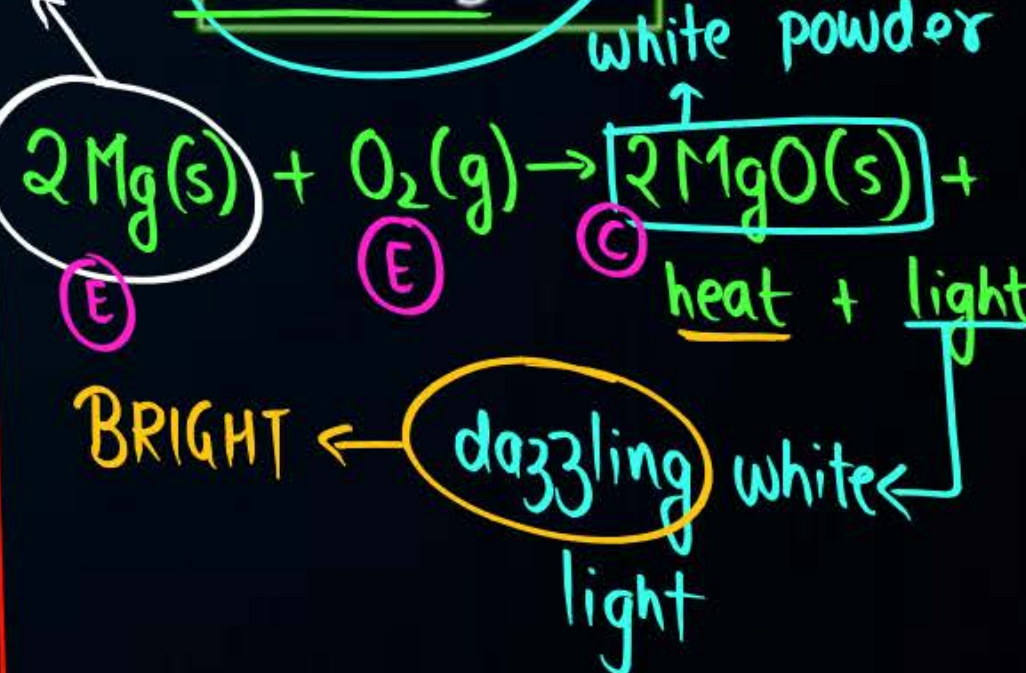 white powder
2Mg(s) + O₂(g) → 2MgO(s) +
E E C
heat + light
BRIGHT ← dazzling white ←
light